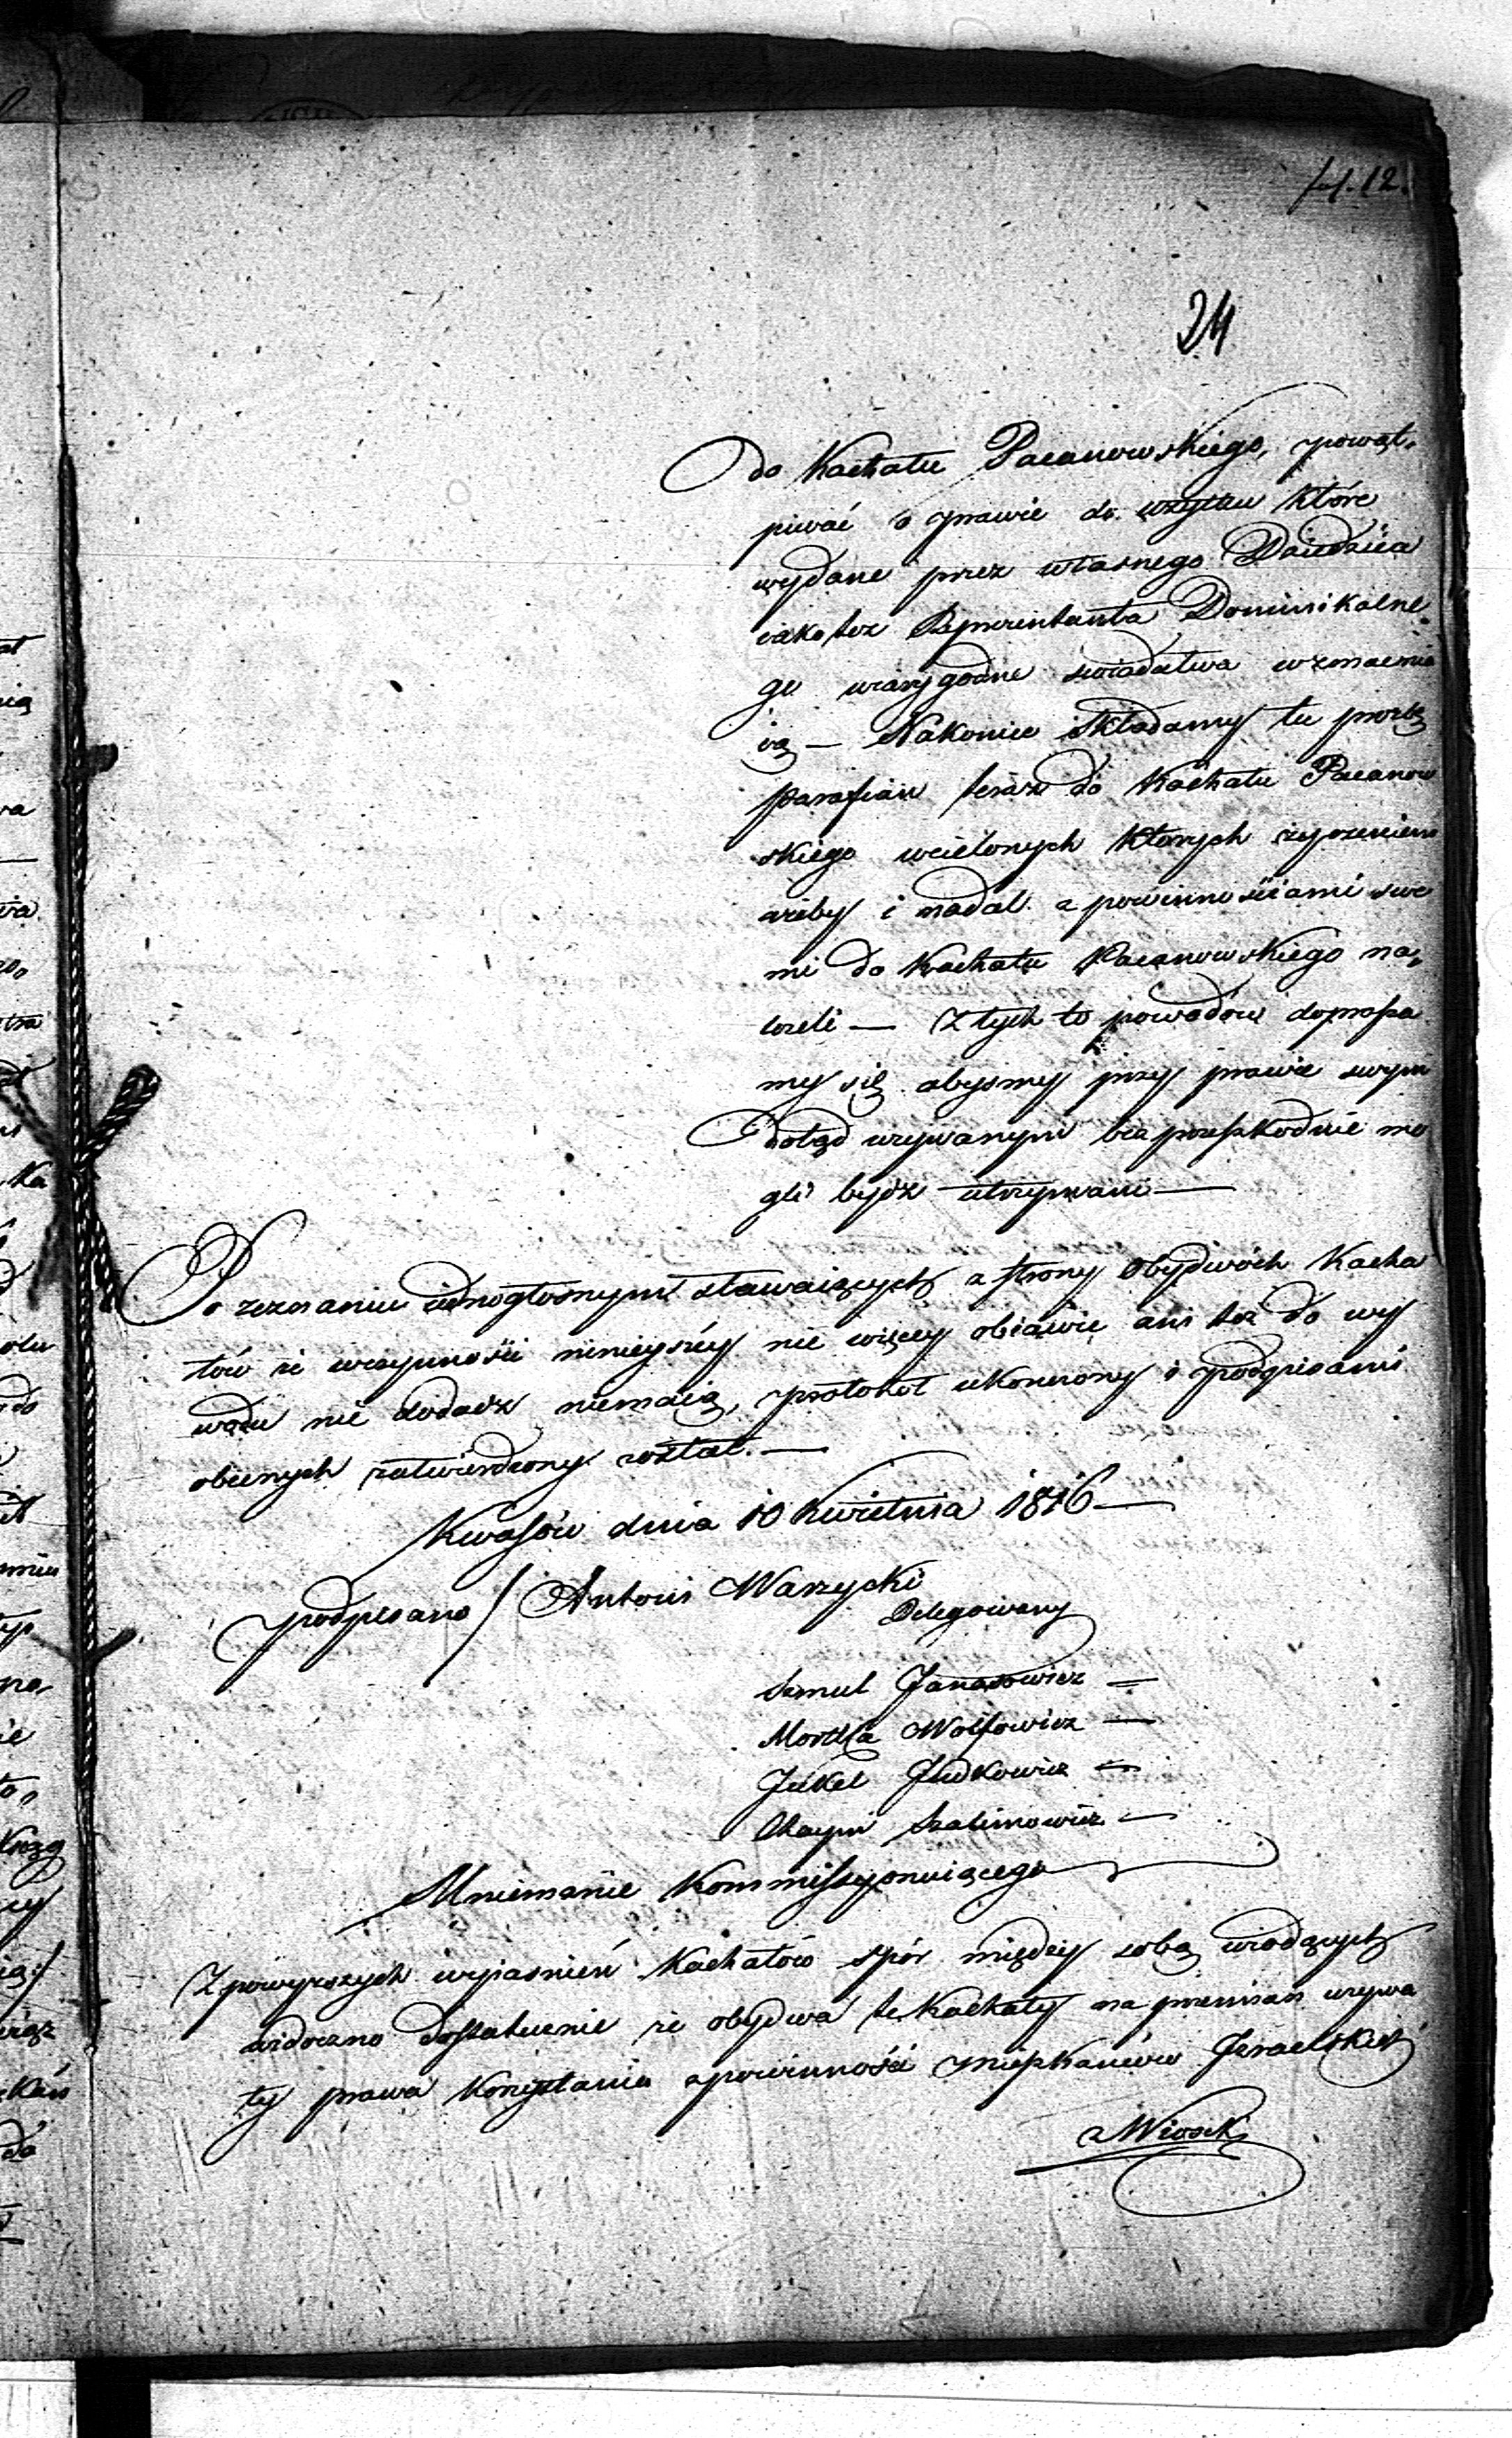 fol. 12.
24
do Kachału Pacanowskiego, powąt„
piwać o prawie do użytku które
wydane przez własnego Dziedzica
iako tez Reprezentanta Dominikalne„
go wiarygodne swiadectwa wzmacnia
ią — Nakoniec składamy tu prozbę
parafian teraz do Kachału Pacanow
skiego wcielonych których życzeniem
ażeby i nadal z powinnościami swe
mi do Kachału Pacanowskiego na„
leżeli — Z tych to powodów doprasza
my się abysmy przy prawie swym
dotąd używanym bez przeszkodnie mo
gli bydź utrzymani —
Po zeznaniu iednogłosnym stawaiących z strony Obydwóch Kacha
łów iż w czynności ninieyszéy nic więcéy obiawić ani też do wy
wodu nic dodadź niemaią, protokół ukończony i podpisami
obecnych zatwierdzony został. —
Kwasów dnia 10 Kwietnia 1816 —
podpisano / Antoni Warzycki
Delegowany
Szmul Janasowicz —
Mortka Wolfowicz —
Jukel Judkowicz —
Chaym Szalimowicz —
Mniemanie Kommissyonuiącego
Z powyzszych wyiasnień Kachałów spór między sobą wiodących
widoczno dostatecznie iż obydwa te Kachały na przemian używa
ły prawa korzystania z powinności mieszkańców Izraelskich
z Wiosek